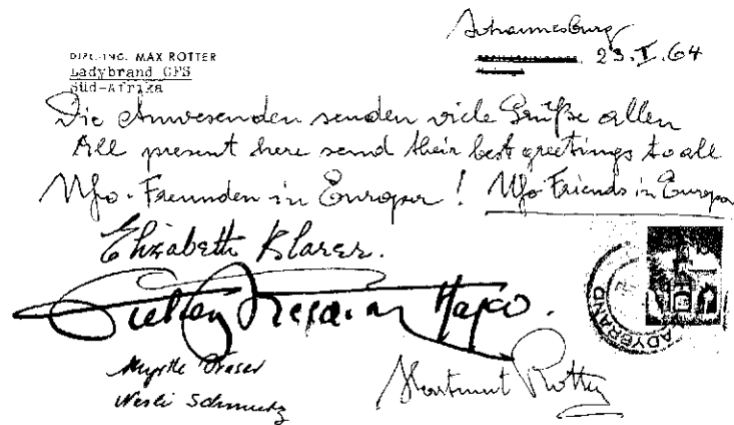 Johannesburg
23.I.64
DIPL.-ING. MAX ROTTER
Ladybrand OFS
Süd-Afrika
Die Anwesenden senden viele Grüße allen
All present here send their best greetings to all
Ufo-Freunden in Europa! Ufo Friends in Europa
Elizabeth Klarer.
Myrtle Fraser
Schmutz
Hartmut Rotter
LADYBRAND